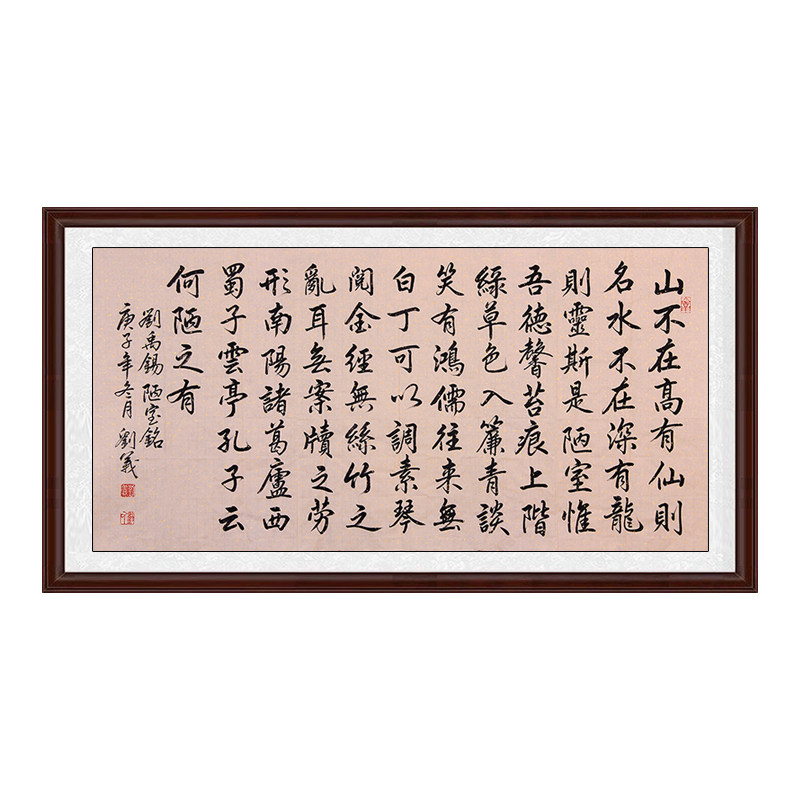 山不在高有仙則
名水不在深有龍
則靈斯是陋室惟
吾德馨苔痕上階
綠草色入簾青談
笑有鴻儒往来無
白丁可以調素琴
閱金經無絲竹之
亂耳無案牘之勞
形南陽諸葛廬西
蜀子雲亭孔子云
何陋之有
劉禹錫陋室銘
庚子年冬月劉義